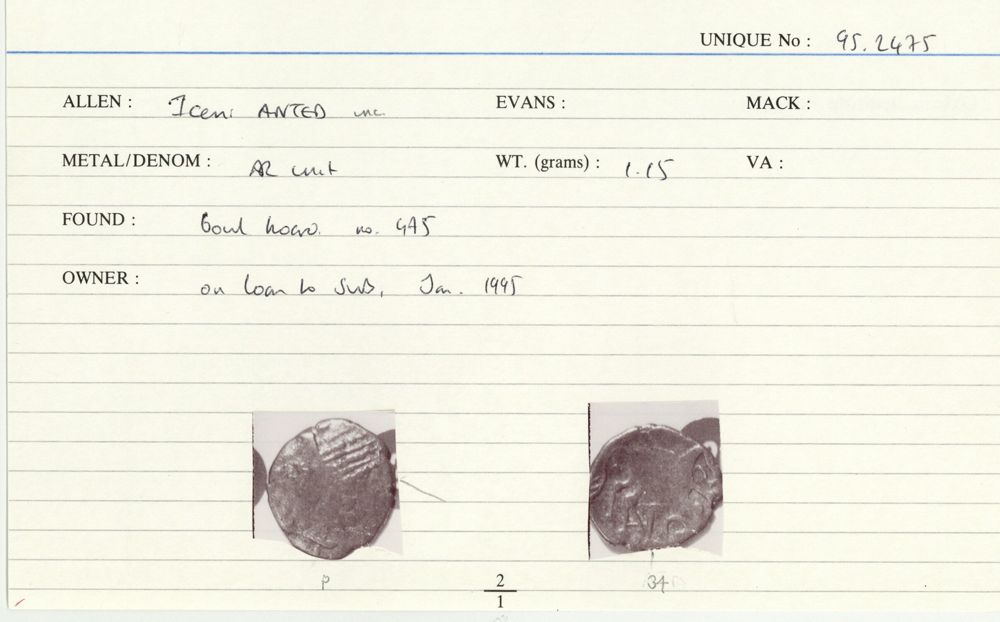 UNIQUE No : 95.2475
ALLEN : Iceni ANTED unc. EVANS : MACK :
METAL/DENOM : AR unit WT. (grams) : 1.15 VA :
FOUND : hoard. no. 475
OWNER : on loan to Jan. 1995
2
1